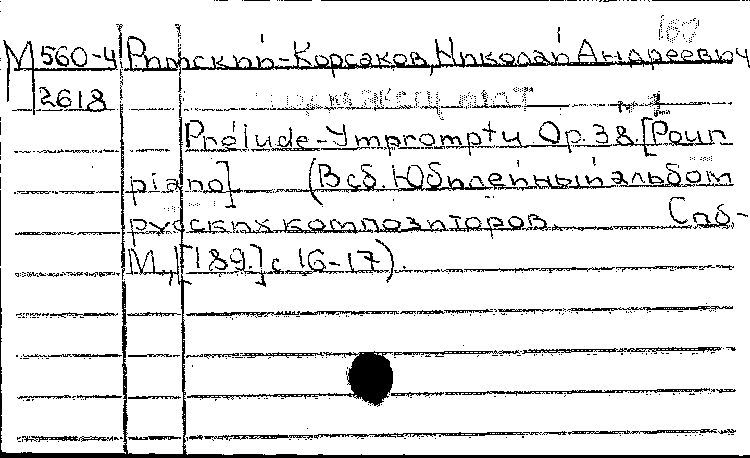 160
М 560-4 Римский-Корсаков, Николай Андреевич
2618
Prélude-Impromptu Op. 38. [Pour
piano] (В сб. Юбилейный альбом
русских композиторов. Спб-
М., [189.] с 16-17).